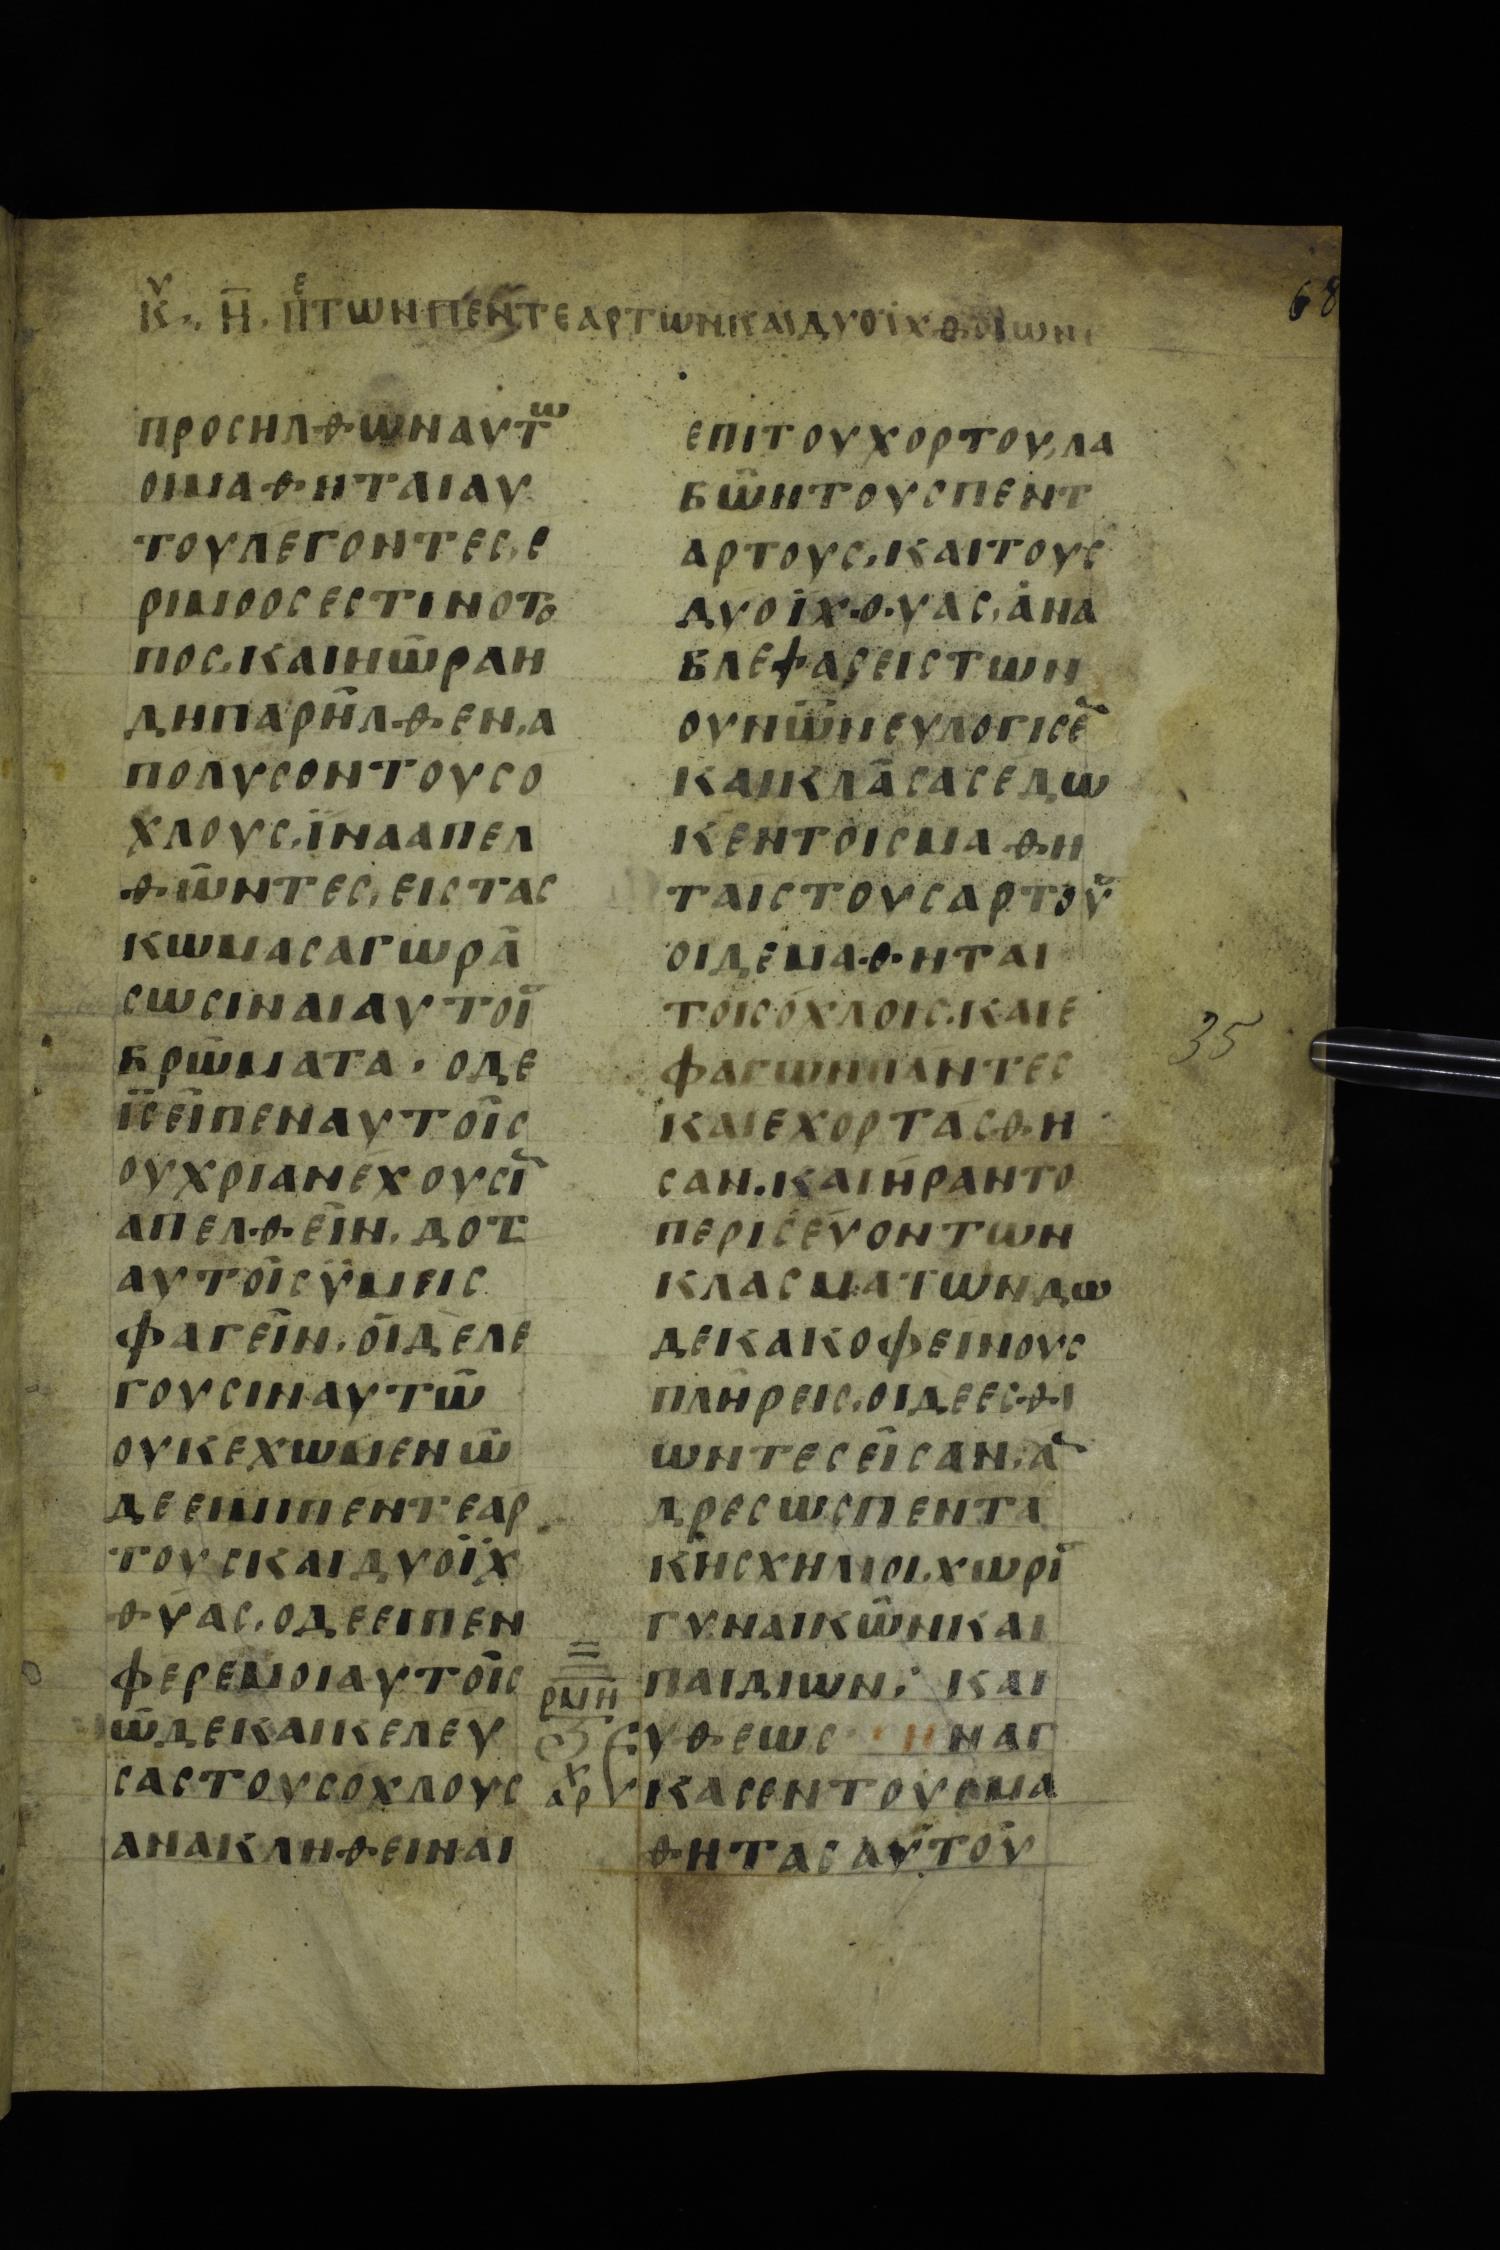 68
Κυ .. Η̅ . Πε ΤΩΝΠΕΝΤΕΑΡΤΩΝΚΑΙΔΥΟΪΧΘΟΙΩΝ
ΠΡΟΣΗΛΘΩΝΑΥΤω
ΟΙΜΑΘΗΤΑΙΑΥ
ΤΟΥΛΕΓΟΝΤΕΣ,Ε
ΡΙΜΟΟΣΕΣΤΙΝΟΤο
ΠΟΣ,ΚΑΙΗΩΡΑΗ
ΔΗΠΑΡΗΛΘΕΝ,Α
ΠΟΛΥΣΟΝΤΟΥΣΟ
ΧΛΟΥΣ,ΪΝΑΑΠΕΛ
ΘΩΝΤΕΣ,ΕΙΣΤΑΣ
ΚΩΜΑΣΑΓΩΡΑ
ΣΩΣΙΝΑΙΑΥΤΟΙ
ΒΡΩΜΑΤΑ · ΟΔΕ
Ι̅Σ̅ΕΙΠΕΝΑΥΤΟΙΣ
ΟΥΧΡΙΑΝΕΧΟΥΣΙ
ΑΠΕΛΘΕΙΝ,ΔΟΤΕ
ΑΥΤΟΙΣΫΜΕΙΣ
ΦΑΓΕΙΝ,ΟΙΔΕΛΕ
ΓΟΥΣΙΝΑΥΤΩ
ΟΥΚΕΧΩΜΕΝΩ
ΔΕΕΙΜΙΠΕΝΤΕΑΡ
ΤΟΥΣΚΑΙΔΥΟΪΧ
ΘΥΑΣ,ΟΔΕΕΙΠΕΝ
ΦΕΡΕΜΟΙΑΥΤΟΙΣ
ΩΔΕΚΑΙΚΕΛΕΥ
ΣΑΣΤΟΥΣΟΧΛΟΥΣ
ΑΝΑΚΛΗΘΕΙΝΑΙ
ΡΜΗ
αρχ
ΕΠΙΤΟΥΧΟΡΤΟΥ,ΛΑ
ΒΩΝΤΟΥΣΠΕΝΤ
ΑΡΤΟΥΣ,ΚΑΙΤΟΥΣ
ΔΥΟΪΧΘΥΑΣ,ΑΝΑ
ΒΛΕΦΑΣΕΙΣΤΩΝ
ΟΥΝΩΝΕΥΛΟΓΙΣΕ
ΚΑΙΚΛΑΣΑΣΕΔΩ
ΚΕΝΤΟΙΣΜΑΘΗ
ΤΑΙΣΤΟΥΣΑΡΤΟΥ
ΟΙΔΕΜΑΘΗΤΑΙ
ΤΟΙΣΟΧΛΟΙΣ,ΚΑΙΕ
35
ΦΑΓΩΝΠΑΝΤΕΣ
ΚΑΙΕΧΟΡΤΑΣΘΗ
ΣΑΝ.ΚΑΙΗΡΑΝΤΟ
ΠΕΡΙΣΕΥΟΝΤΩΝ
ΚΛΑΣΜΑΤΩΝΔω
ΔΕΚΑΚΟΦΕΙΝΟΥΣ
ΠΛΗΡΕΙΣ,ΟΙΔΕΕΣΘΙ
ΩΝΤΕΣΕΙΣΑΝ,Α
ΔΡΕΣΩΣΠΕΝΤΑ
ΚΗΣΧΗΛΙΟΙ,ΧΩΡΙ
ΓΥΝΑΙΚΩΝΚΑΙ
ΠΑΙΔΙΩΝ: ΚΑΙ
ΕΥΘΕΩΣ ΗΝΑΓ
ΚΑΣΕΝΤΟΥΣΜΑ
ΘΗΤΑΣΑΥΤΟΥ